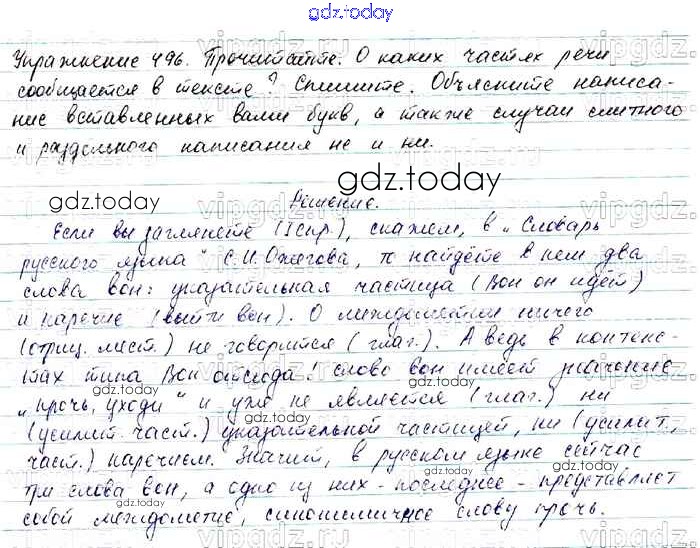 gdz.today
Упражнение 496. Прочитайте. О каких частях речи
сообщается в тексте? Спишите. Объясните написа-
ние вставленных вами букв, а также случаи слитного
и раздельного написания не и ни.
gdz.today
gdz.today
Решение.
Если вы заглянете (I спр.), скажем, в „Словарь
русского языка" С.И. Ожегова, то найдёте в нем два
слова вон: указательная частица (Вон он идёт)
и наречие (выйти вон). О междометии ничего
(отриц. мест.) не говорится (глаг.). А ведь в контекс-
тах типа Вон отсюда! слово вон имеет значение
„прочь, уходи" и уже не является (глаг.) ни
(усилит. част.) указательной частицей, ни (усилит.
част.) наречием. Значит, в русском языке сейчас
три слова вон, а одно из них - последнее - представляет
собой междометие, синонимичное слову прочь.